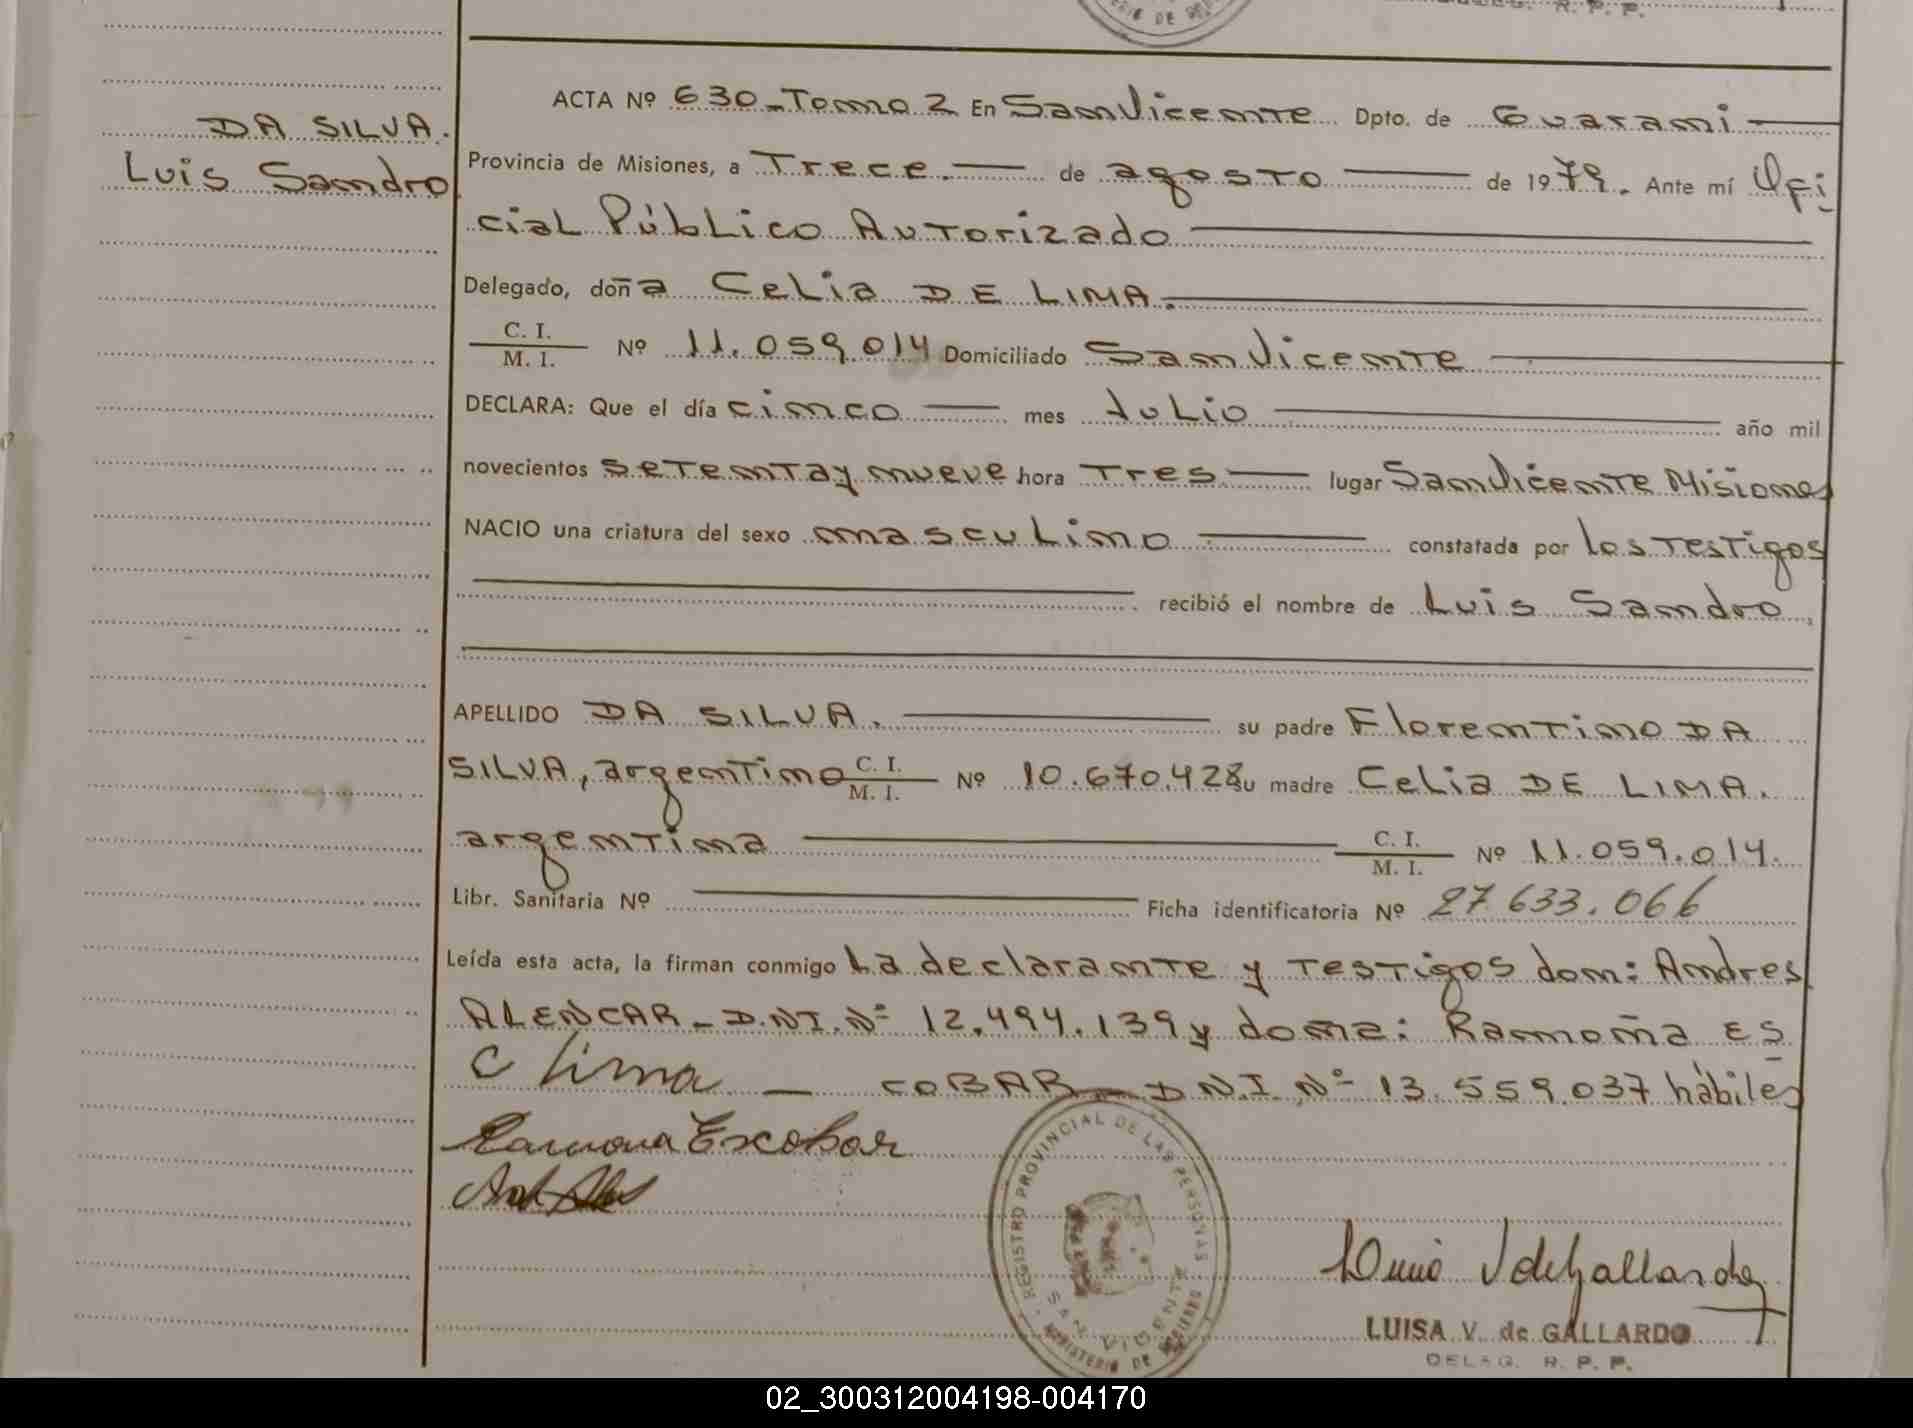 DE
R. P. P.
DA SILVA.
Luis Sandro
ACTA Nº 630_Tomo 2 En San Vicente Dpto. de Guarani
Provincia de Misiones, a Trece. de agosto de 1979. Ante mí Ofi
cial Público Autorizado
Delegado, doña Celia DE LIMA.
C. I.
M. I. Nº 11.059.014 Domiciliado San Vicente
DECLARA: Que el día cinco mes Julio año mil
novecientos setenta y nueve hora Tres lugar San Vicente Misiones
NACIO una criatura del sexo masculino constatada por los testigos
recibió el nombre de Luis Sandro
APELLIDO DA SILVA. su padre Florentino DA
SILVA, argentino C. I. M. I. Nº 10.670.428 su madre Celia DE LIMA.
argentina C. I. M. I. Nº 11.059.014.
Libr. Sanitaria Nº Ficha identificatoria Nº 27.633.066
Leída esta acta, la firman conmigo La declarante y testigos don: Andres
ALENCAR_ D.N.I. Nº 12.494.139 y doña: Ramona ES
C lima — COBAR_ D.N.I. Nº 13.559.037 hábiles
Ramona Escobar
REGISTRO PROVINCIAL DE LAS PERSONAS
SAN VICENTE
MINISTERIO DE
V de Gallardo
LUISA V. de GALLARDO
DELEG. R. P. P.
02_300312004198-004170